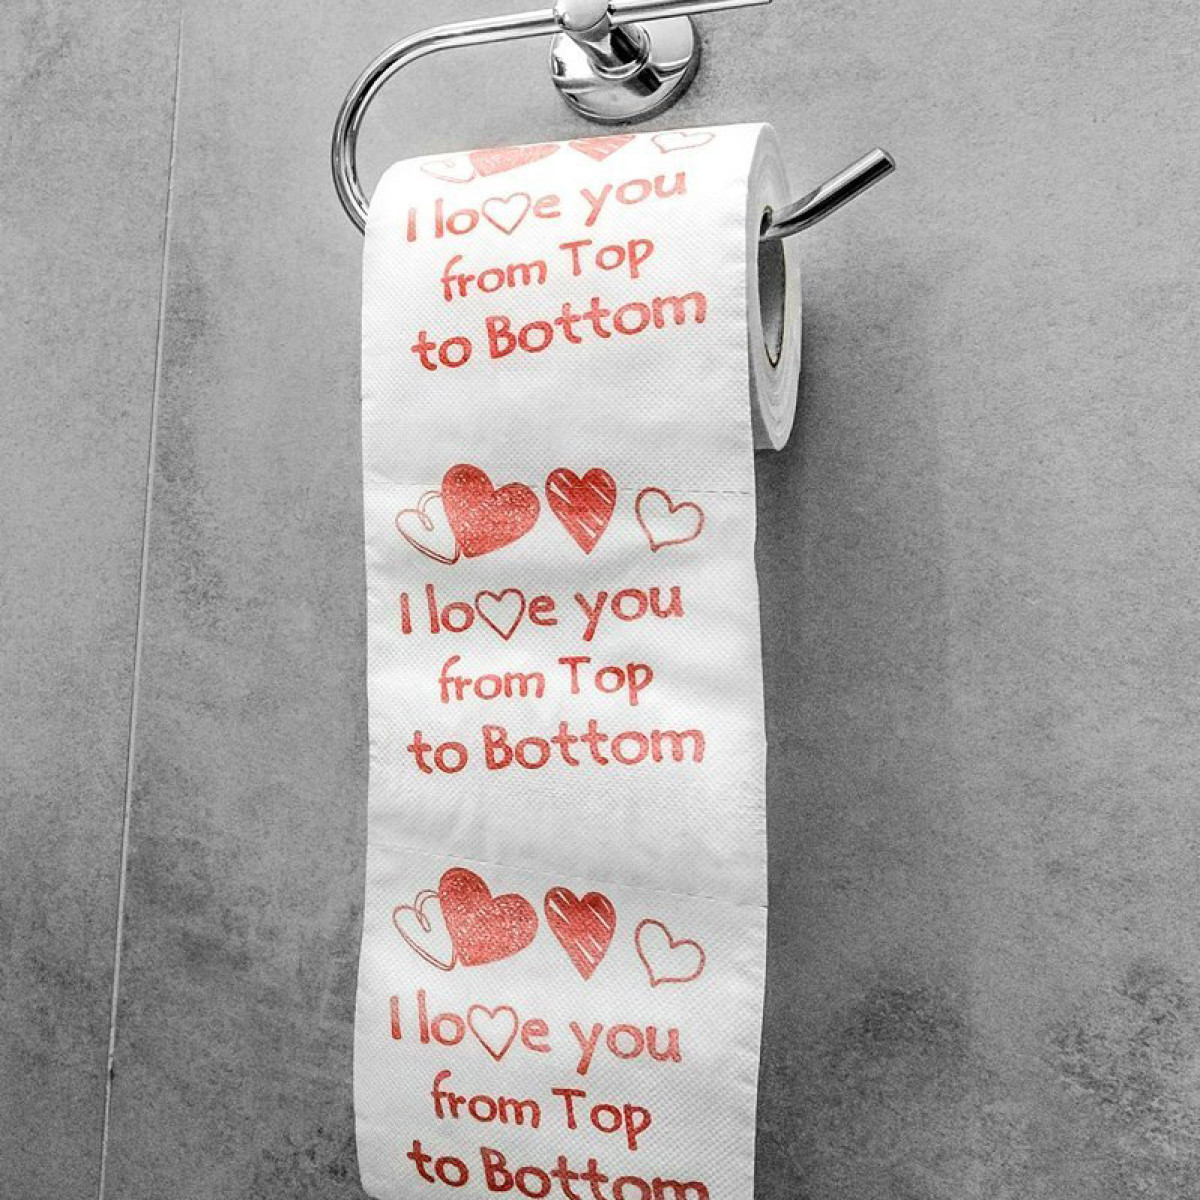 I love you
from Top
to Bottom
I love you
from Top
to Bottom
I love you
from Top
to Bottom